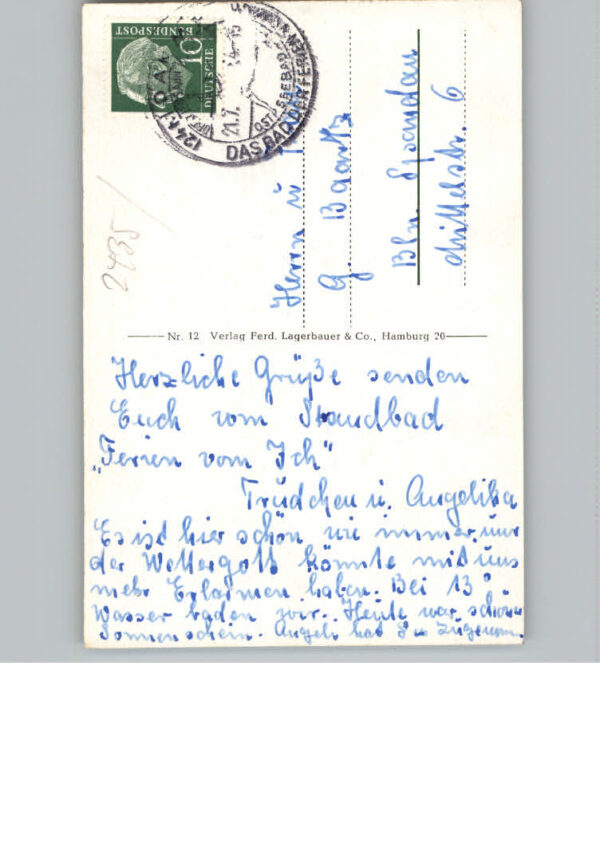 10
BUNDESPOST
DEUTSCHE
21.7.
OSTSEEBAD
DAS BAD DER FERIEN
2435/
Herrn u
G. Baartz
Bln. Spandau
6
Nr. 12 Verlag Ferd. Lagerbauer & Co., Hamburg 20
Herzliche Grüße senden
Euch vom Strandbad
„Ferien vom Ich"
Trudchen u. Angelika
Es ist hier schön wie immer, nur
der Wettergott könnte mit uns
mehr Erbarmen haben. Bei 13°
Wasser baden wir. Heute war schon
Sonnenschein. Angeli hat